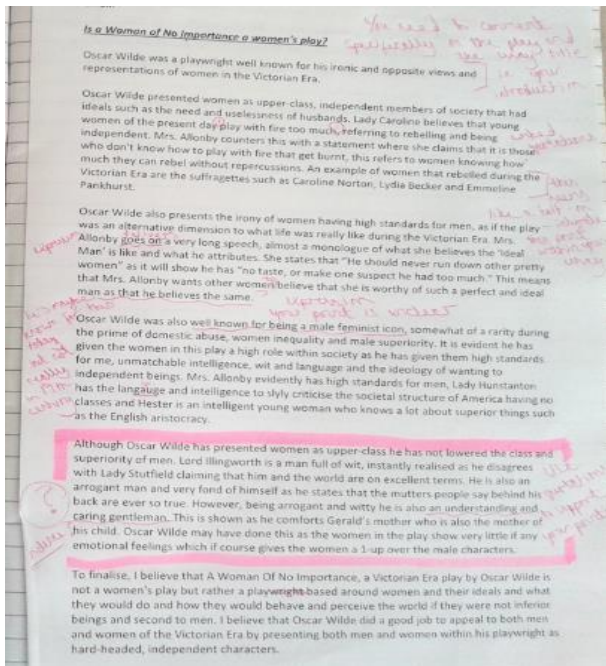 Is a Woman of No Importance a women's play?
You need to comment
specifically on the play and
in your
introduction
Oscar Wilde was a playwright well known for his ironic and opposite views and
representations of women in the Victorian Era.
Oscar Wilde presented women as upper-class, independent members of society that had
ideals such as the need and uselessness of husbands. Lady Caroline believes that young
women of the present day play with fire too much, referring to rebelling and being
independent. Mrs. Allonby counters this with a statement where she claims that it is those
who don't know how to play with fire that get burnt, this refers to women knowing how
much they can rebel without repercussions. An example of women that rebelled during the
Victorian Era are the suffragettes such as Caroline Norton, Lydia Becker and Emmeline
Pankhurst.
Oscar Wilde also presents the irony of women having high standards for men, as if the play
was an alternative dimension to what life was really like during the Victorian Era. Mrs.
Allonby goes on a very long speech, almost a monologue of what she believes the 'Ideal
Man' is like and what he attributes. She states that "He should never run down other pretty
women" as it will show he has "no taste, or make one suspect he had too much." This means
that Mrs. Allonby wants other women believe that she is worthy of such a perfect and ideal
man as that he believes the same.
your point is unclear
Oscar Wilde was also well known for being a male feminist icon, somewhat of a rarity during
the prime of domestic abuse, women inequality and male superiority. It is evident he has
given the women in this play a high role within society as he has given them high standards
for me, unmatchable intelligence, wit and language and the ideology of wanting to
independent beings. Mrs. Allonby evidently has high standards for men, Lady Hunstanton
has the langauge and intelligence to slyly criticise the societal structure of America having no
classes and Hester is an intelligent young woman who knows a lot about superior things such
as the English aristocracy.
Although Oscar Wilde has presented women as upper-class he has not lowered the class and
superiority of men. Lord Illingworth is a man full of wit, instantly realised as he disagrees
with Lady Stutfield claiming that him and the world are on excellent terms. He is also an
arrogant man and very fond of himself as he states that the mutters people say behind his
back are ever so true. However, being arrogant and witty he is also an understanding and
caring gentleman. This is shown as he comforts Gerald's mother who is also the mother of
his child. Oscar Wilde may have done this as the women in the play show very little if any
emotional feelings which if course gives the women a 1-up over the male characters.
Use
quotations
to support
your points
?
To finalise, I believe that A Woman Of No Importance, a Victorian Era play by Oscar Wilde is
not a women's play but rather a playwright based around women and their ideals and what
they would do and how they would behave and perceive the world if they were not inferior
beings and second to men. I believe that Oscar Wilde did a good job to appeal to both men
and women of the Victorian Era by presenting both men and women within his playwright as
hard-headed, independent characters.